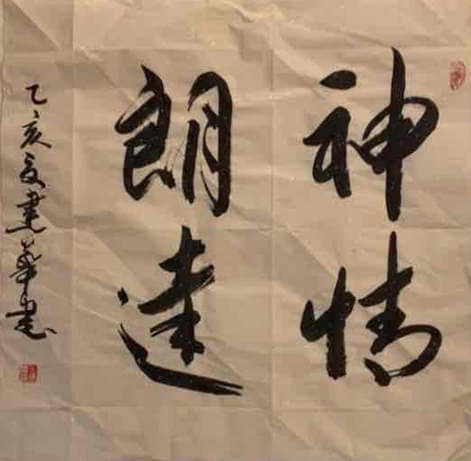 神情
朗達
乙亥建華書